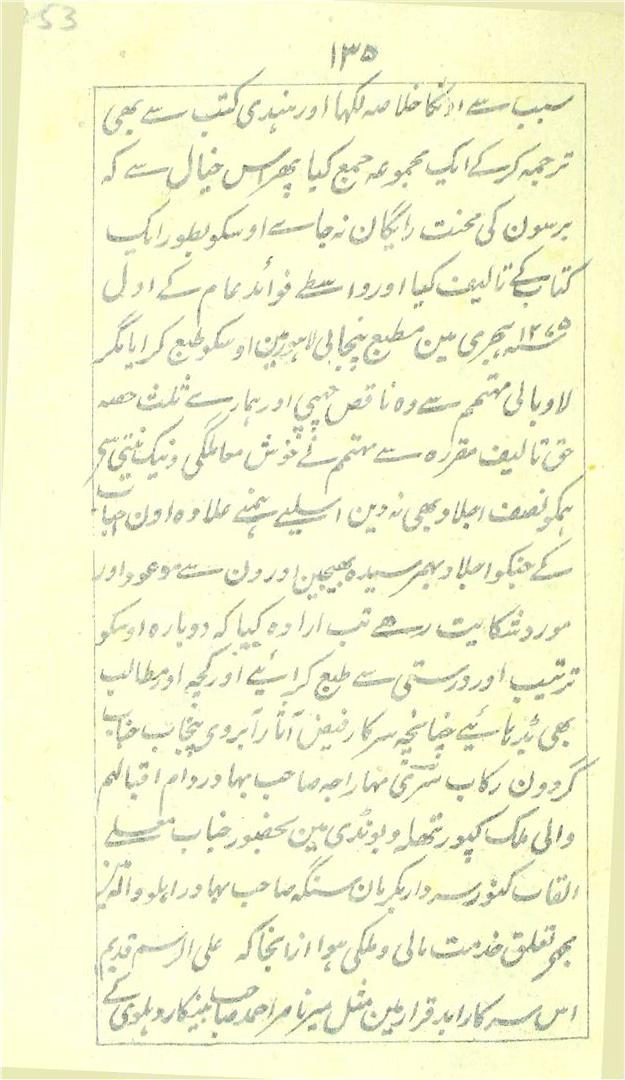 53
۱۳۵
سبب سے انکا خلاصہ لکھا اور ہندی کتب سے بھی
ترجمہ کرکے ایک مجموعہ جمع کیا پھر اس خیال سے کہ
برسون کی محنت رایگان نہ جاے اوسکو بطور ایک
کتاب کے تالیف کیا اور واسطے فوائد عام کے اول
۱۲۷۵ ہجری مین مطبع پنجابی لاہور مین اوسکو طبع کرایا مگر
لاوبالی مہتمم سے وہ ناقص چھپی اور ہمارے ثلث حصہ
حق تالیف مقررہ سے مہتمم نے خوش معاملگی و نیک نیتی سے
ہمکو نصف اجلاد بھی نہ دین اسلیے ہمنے علاوہ اون احباب
کے جنکو اجلاد بہمرسیدہ بھیجین اورون سے موعود اور
مورد شکایت رہے تب ارادہ کیا کہ دوبارہ اوسکو
ترتیب اور درستی سے طبع کرائیے اور کچھ اور مطالب
بھی بڑہائیے چنانچہ سرکار فیض آثار آبروی پنجاب جناب
گردون رکاب شری مہاراجہ صاحب بہادر دام اقبالہم
والی ملک کپورتھلہ و بونڈی مین بحضور جناب معلے
القاب کنور سردار بکرمان سنگہ صاحب بہادر اہلووالیہ
بھر تعلق خدمت مالی و ملکی ہوا ازانجا کہ علی الرسم قدیم
اس سرکار ابد قرار مین مثل میر ناصر احمد صاحب بینکار دہلوی کے